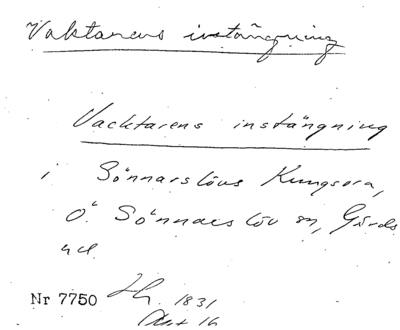 Vaktarens instängning
Vacktarens instängning
i Sönnarslövs Kungsora,
Ö Sönnarslöv sn, Gärds
hd
Nr 7750 1831
Akt 16